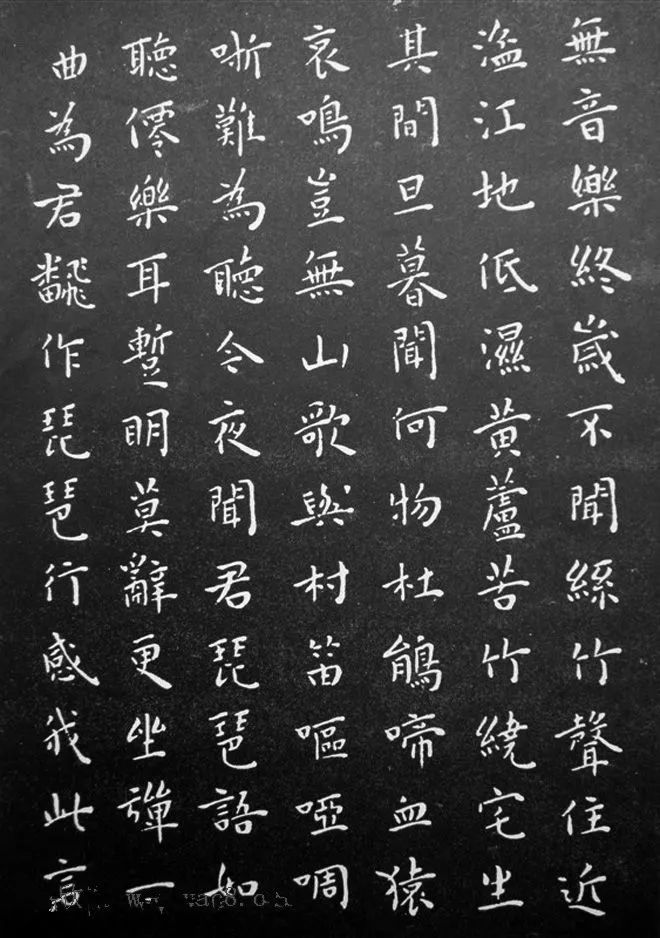 無音樂終歲不聞絲竹聲住近
湓江地低濕黃蘆苦竹繞宅生
其間旦暮聞何物杜鵑啼血猿
哀鳴豈無山歌與村笛嘔啞啁
哳難為聽今夜聞君琵琶語如
聽僊樂耳暫明莫辭更坐彈一
曲為君飜作琵琶行感我此言